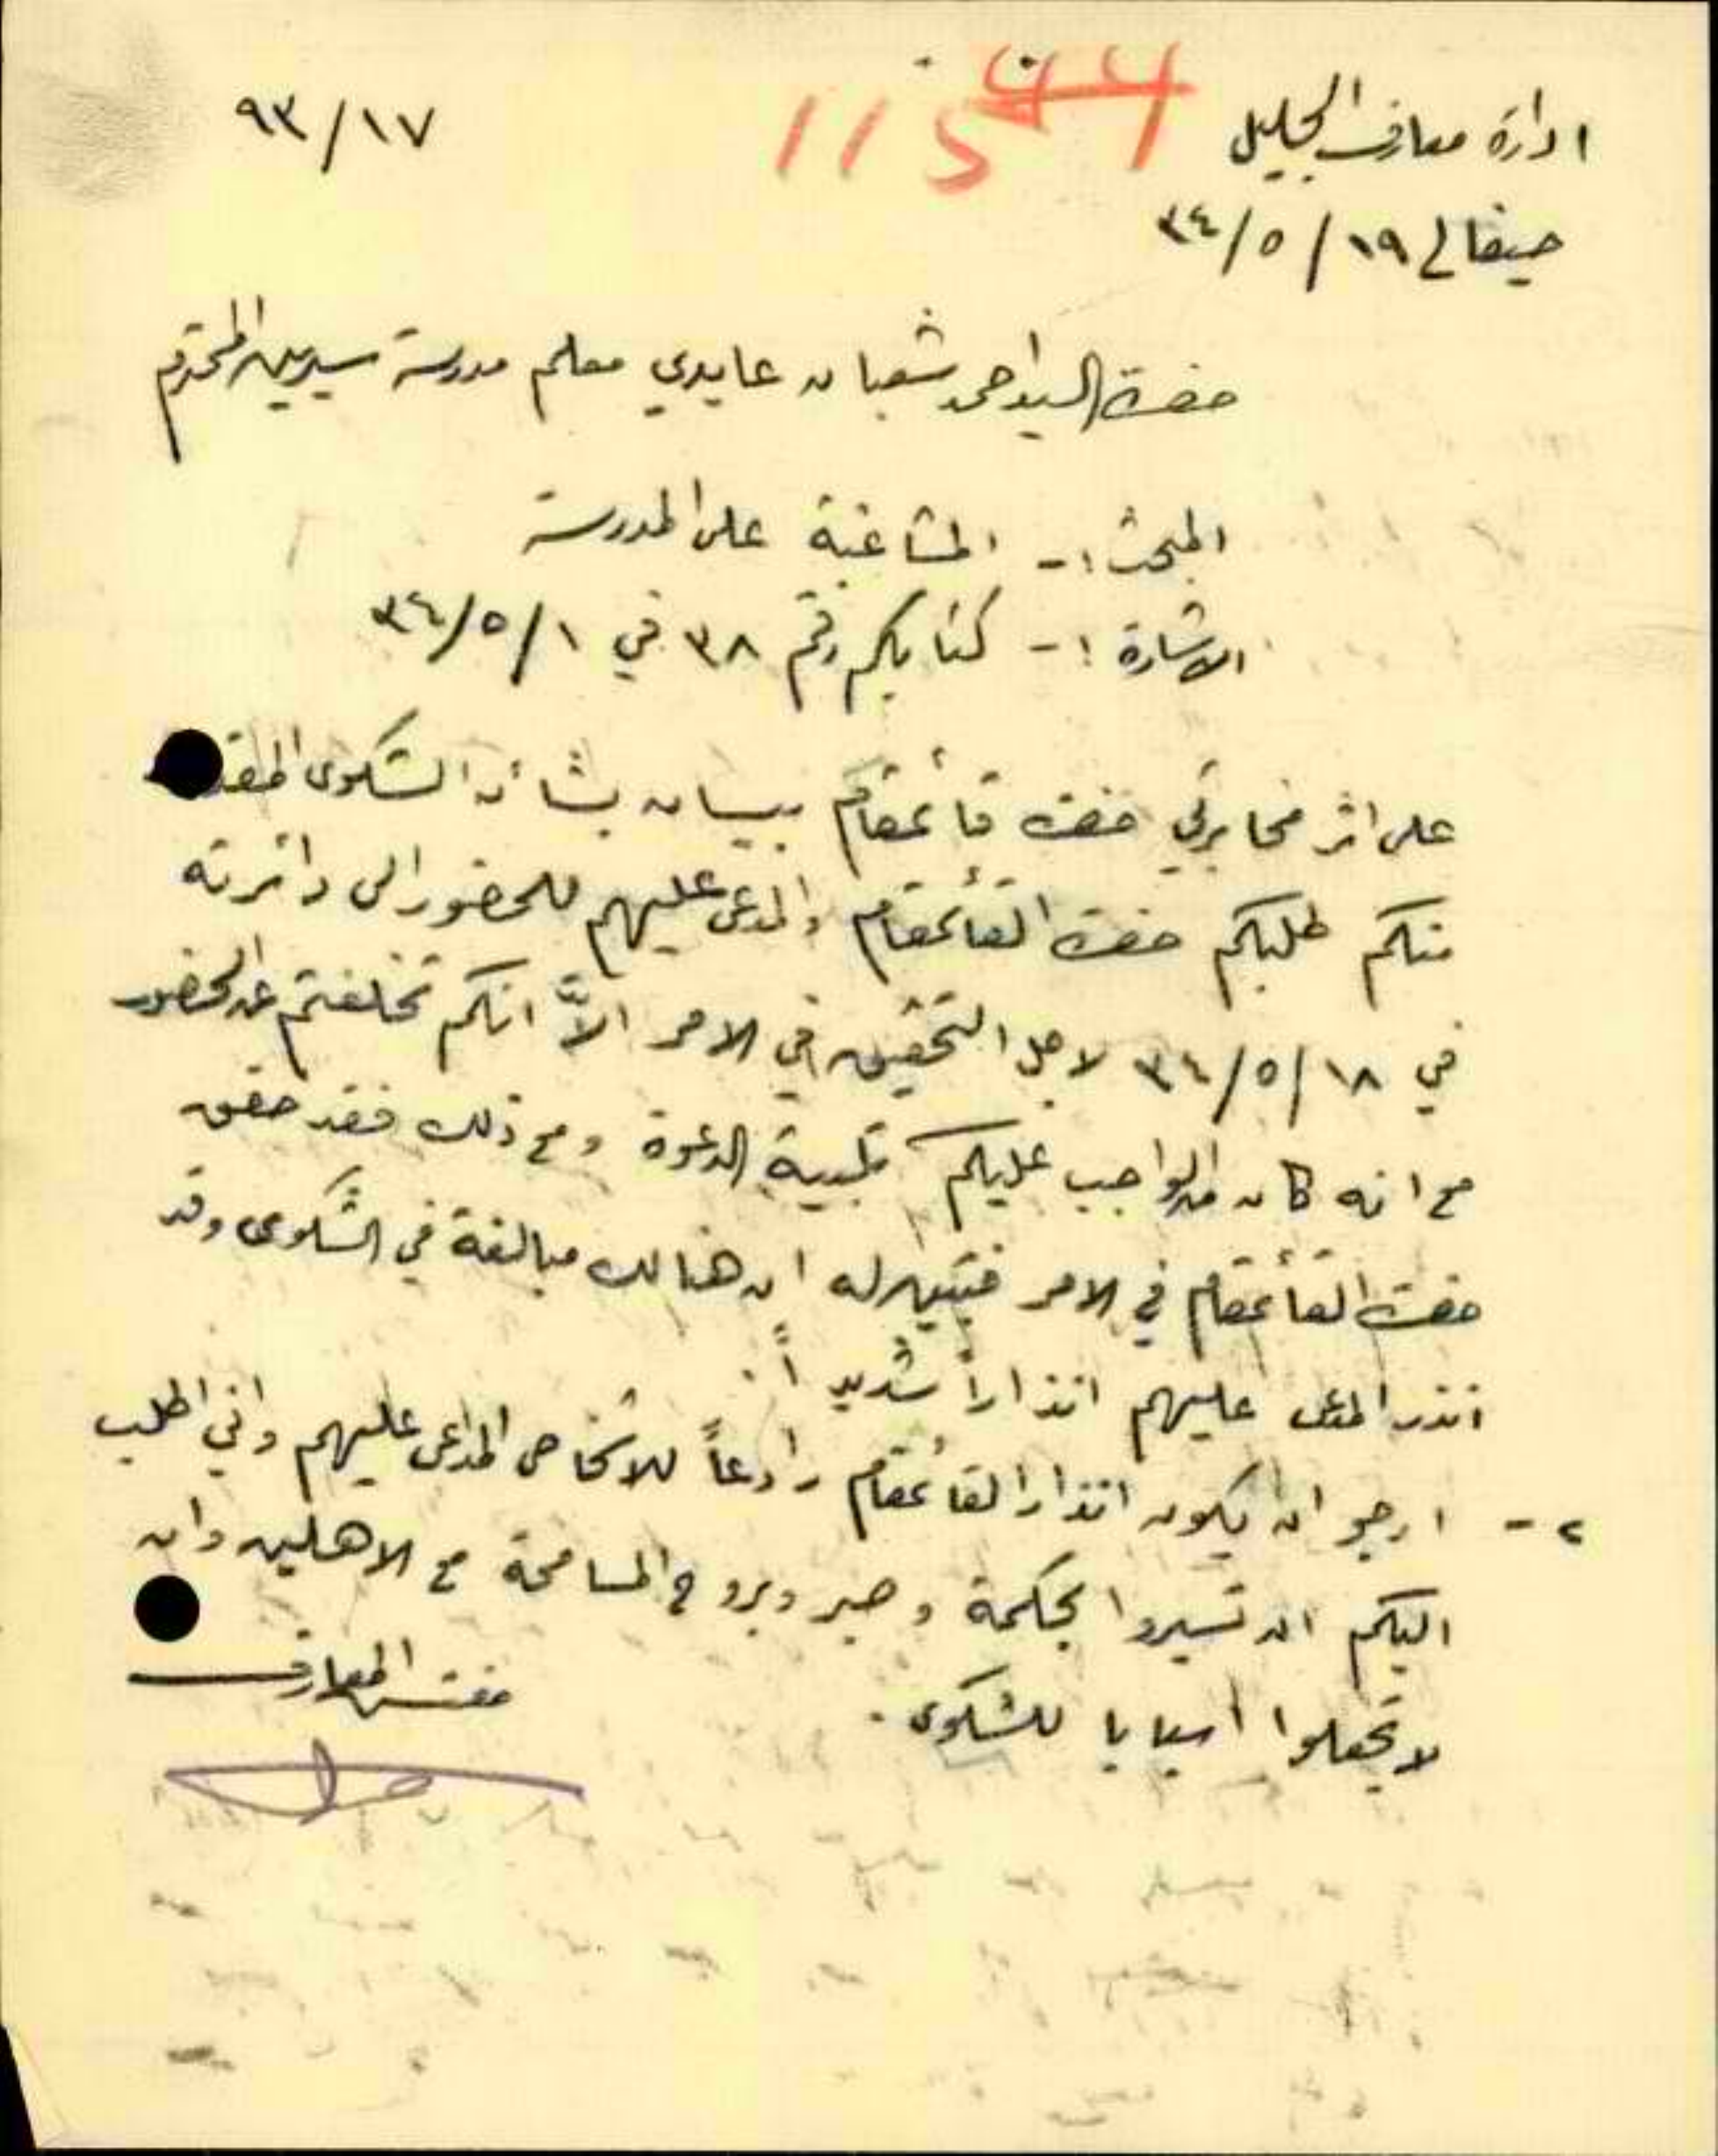 ادارة معارف الجليل
٩٣/١٧
حيفا في ١٩/٥/٣٤
حضرة السيد احمد شعبان عايدي معلم مدرسة سيرين المحترم
المبحث :- المشاغبة على المدرسة
الاشارة :- كتابكم رقم ٣٨ في ١/٥/٣٤
على اثر مخابرتي حضرة قائمقام بيسان بشأن الشكوى
منكم طلبكم حضرة القائمقام والمدعى عليهم للحضور الى دائرته
في ١٨/٥/٣٤ لاجل التحقيق في الامر الاّ انكم تخلفتم عن الحضور
مع انه كان من الواجب عليكم تلبية الدعوة ومع ذلك فقد حقق
حضرة القائمقام في الامر فتبين له ان هنالك مبالغة في الشكوى وقد
انذر المدعى عليهم انذاراً شديداً .
٢- ارجو ان يكون انذار القائمقام رادعاً للاشخاص المدعى عليهم واني اطلب
اليكم ان تسيروا بحكمة وصبر وبروح المسامحة مع الاهلين وان
لا تجعلوا اسبابا للشكوى .
مفتش المعارف